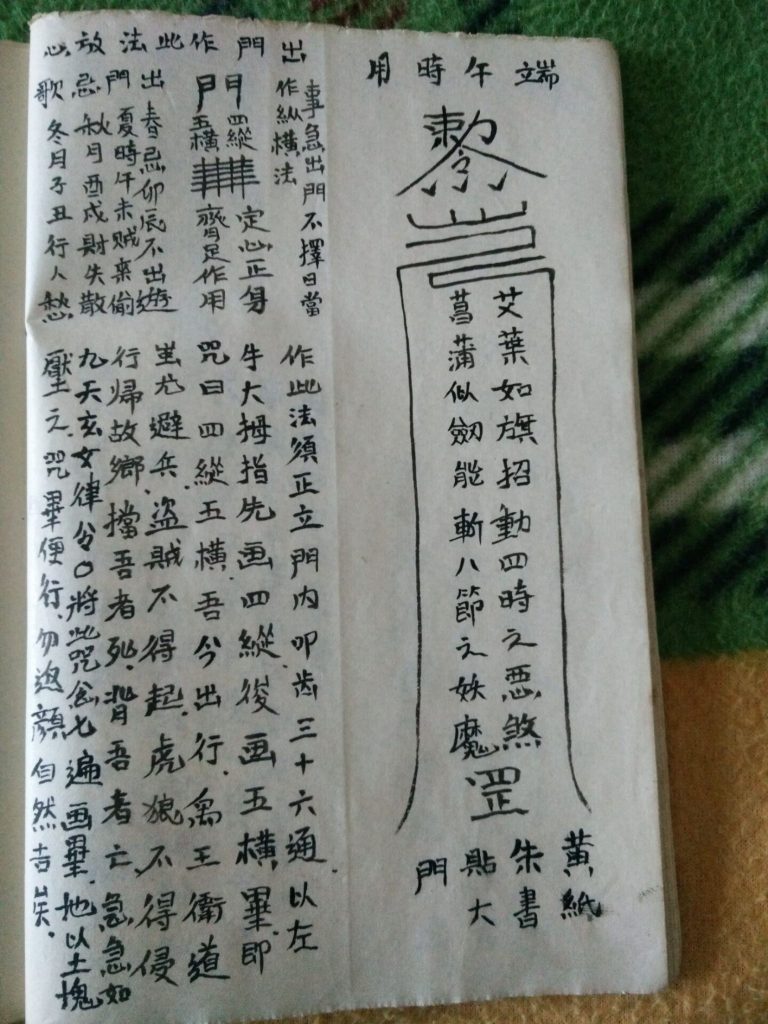 端午時用
敕令
艾葉如旗招動四時之惡煞
菖蒲似劒能斬八節之妖魔
罡
黃紙
朱書
貼大
門
出門作此法放心
事急出門不擇日當
作縱橫法
門
四縱
五橫
定心正身
齊足作用
出門忌歌
春忌卯辰不出遊
夏時午未賊來偷
秋月酉戌財失散
冬月子丑行人愁
作此法須正立門內叩齿三十六通.以左
牛大拇指先画四縱.後画五橫.畢.即
咒曰四縱五橫.吾今出行.禹王衛道
蚩尤避兵.盜賊不得起.虎狼不得侵
行歸故鄉.擋吾者死.背吾者亡.急急如
九天玄女律令○將此咒念七遍画畢.地以土塊
壓之.咒畢便行.勿返顏自然吉矣.